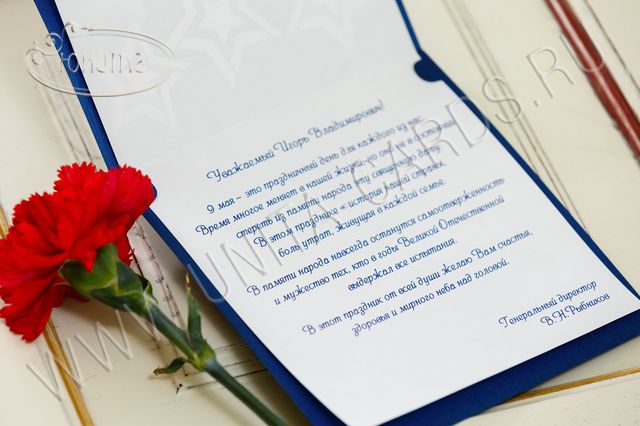 Юнита
WWW.UNITA-CARDS.RU
Уважаемый Игорь Владимирович!
9 мая – это праздничный день для каждого из нас.
Время многое меняет в нашей жизни, но оно не в состоянии
стереть из памяти народа эту священную дату.
В этом празднике – история нашей страны,
боль утрат, живущая в каждой семье.
В памяти народа навсегда останутся самоотверженность
и мужество тех, кто в годы Великой Отечественной
выдержал все испытания.
В этот праздник от всей души желаю Вам счастья,
здоровья и мирного неба над головой.
Генеральный директор
В.Н.Рыбников